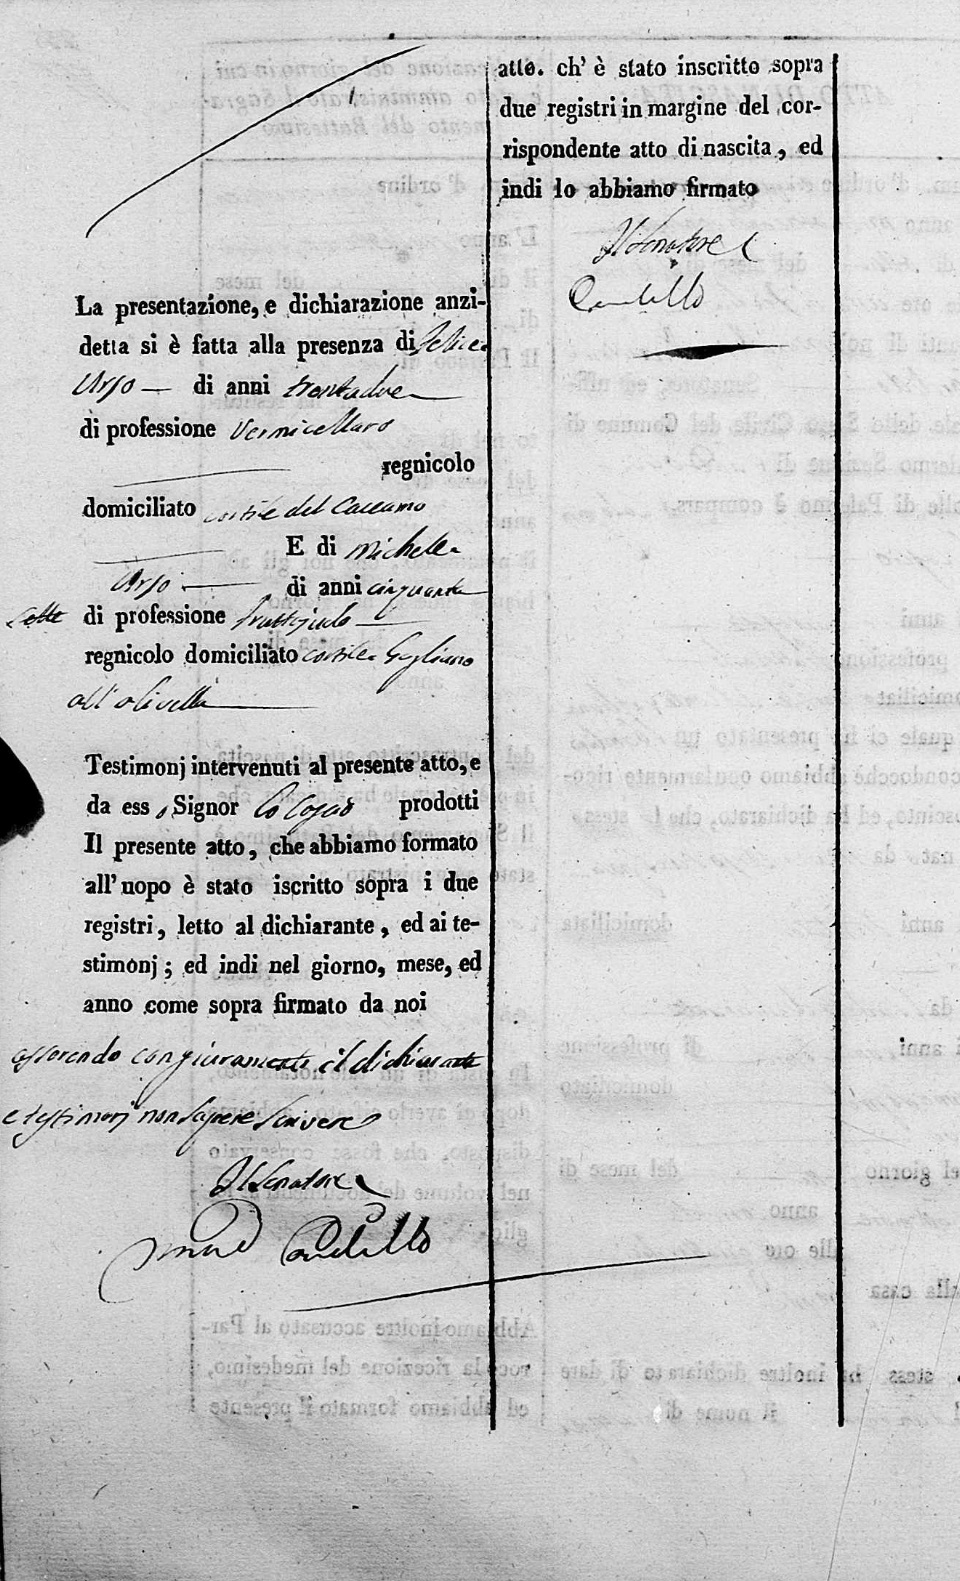 La presentazione, e dichiarazione anzi-
detta si è fatta alla presenza di Felice
Urso di anni trentadue
di professione Vermicellaro
regnicolo
domiciliato cortile del Caccamo
E di Michele
Urso di anni cinquanta
sette di professione fruttajuolo
regnicolo domiciliato cortile Gagliano
all'olivella
Testimonj intervenuti al presente atto, e
da ess Signor Lo Coscio prodotti
Il presente atto, che abbiamo formato
all'uopo è stato iscritto sopra i due
registri, letto al dichiarante, ed ai te-
stimonj; ed indi nel giorno, mese, ed
anno come sopra firmato da noi
asserendo con giuramento il dichiarante
e testimonj non sapere scrivere
Il Senatore
atto. ch' è stato inscritto sopra
due registri in margine del cor-
rispondente atto di nascita, ed
indi lo abbiamo firmato
Il Senatore